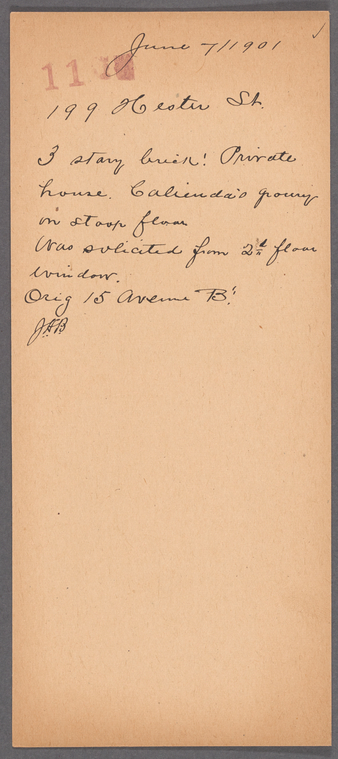 June 7/1901
11
199 Hester St.
3 story brick! Private
house. Calienda's grocery
on stoop floor
Was solicited from 2nd floor
window.
Orig 15 Avenue "B".
JAB